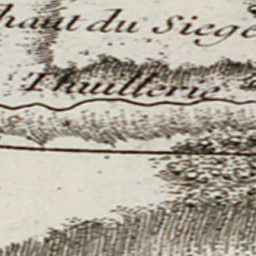 haut du Siege
Thuillerie